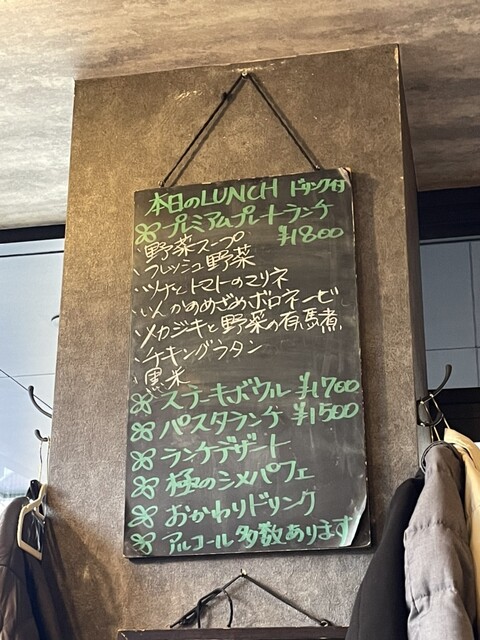 本日のLUNCH ドリンク付
プレミアムプレートランチ
¥1800
野菜スープ
フレッシュ野菜
ツナとトマトのマリネ
いんかのめざめボロネーゼ
メカジキと野菜の有馬煮
チキングラタン
黒米
ステーキボウル ¥1700
パスタランチ ¥1500
ランチデザート
極のシメパフェ
おかわりドリンク
アルコール多数あります